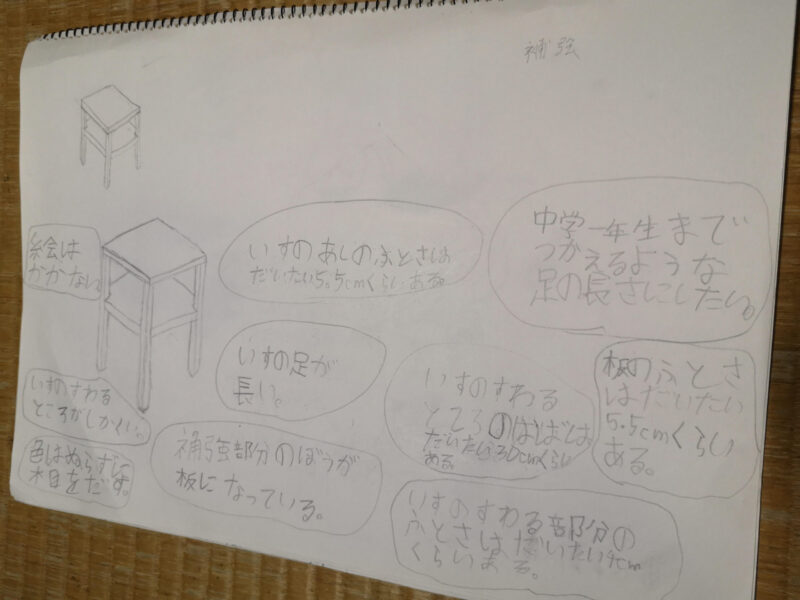 補強
絵は
かかない。
いすのあしのふとさは
だいたい5.5cmくらいある。
中学一年生まで
つかえるような
足の長さにしたい。
いすの足が
長い。
いすのすわる
ところがしかくい。
いすのすわる
ところのはばは
だいたい30cmくらい
ある。
板のふとさ
はだいたい
5.5cmくらい
ある。
色はぬらずに
木目をだす。
補強部分のぼうが
板になっている。
いすのすわる部分の
ふとさはだいたい4cm
くらいある。